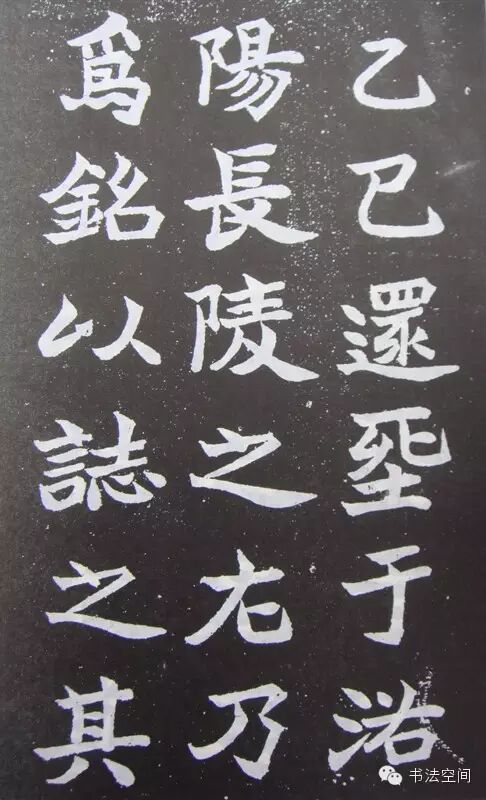 乙巳還葬于洛
陽長陵之左乃
爲銘以誌之其
书法空间